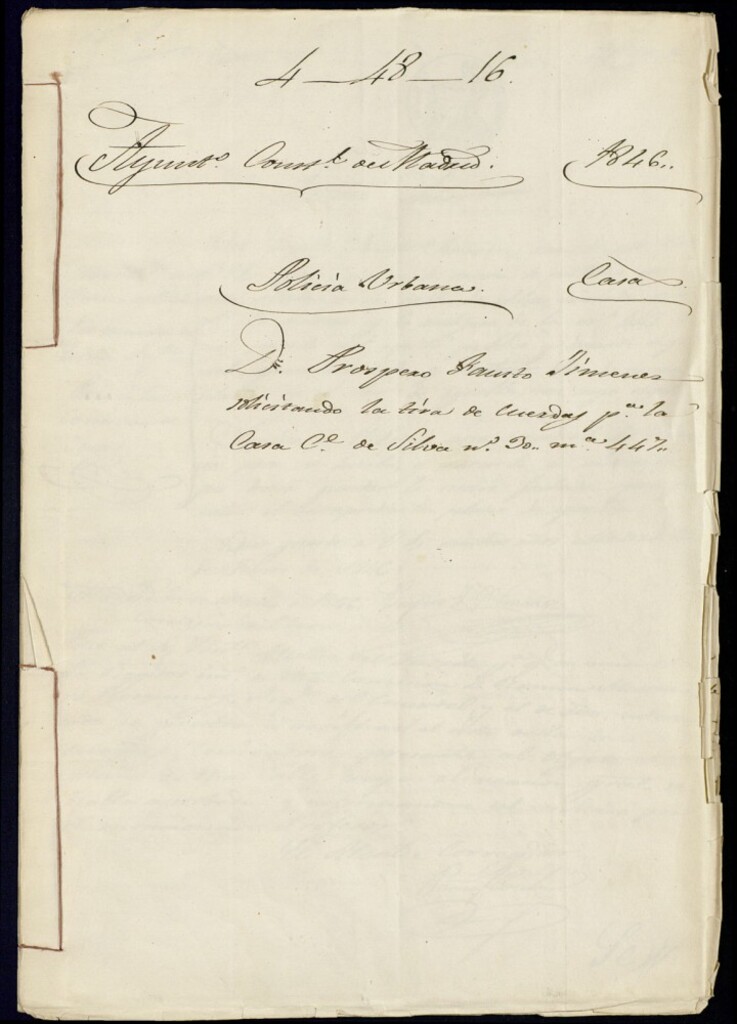 4-48-16.
Ayunto. Const.l de Madrid. 1846..
Policia Urbana. Casa
Dn. Prospero Fausto Jimenez
solicitando la tira de cuerdas p.a la
Casa C.e de Silva n.o 30.. m.a 447..